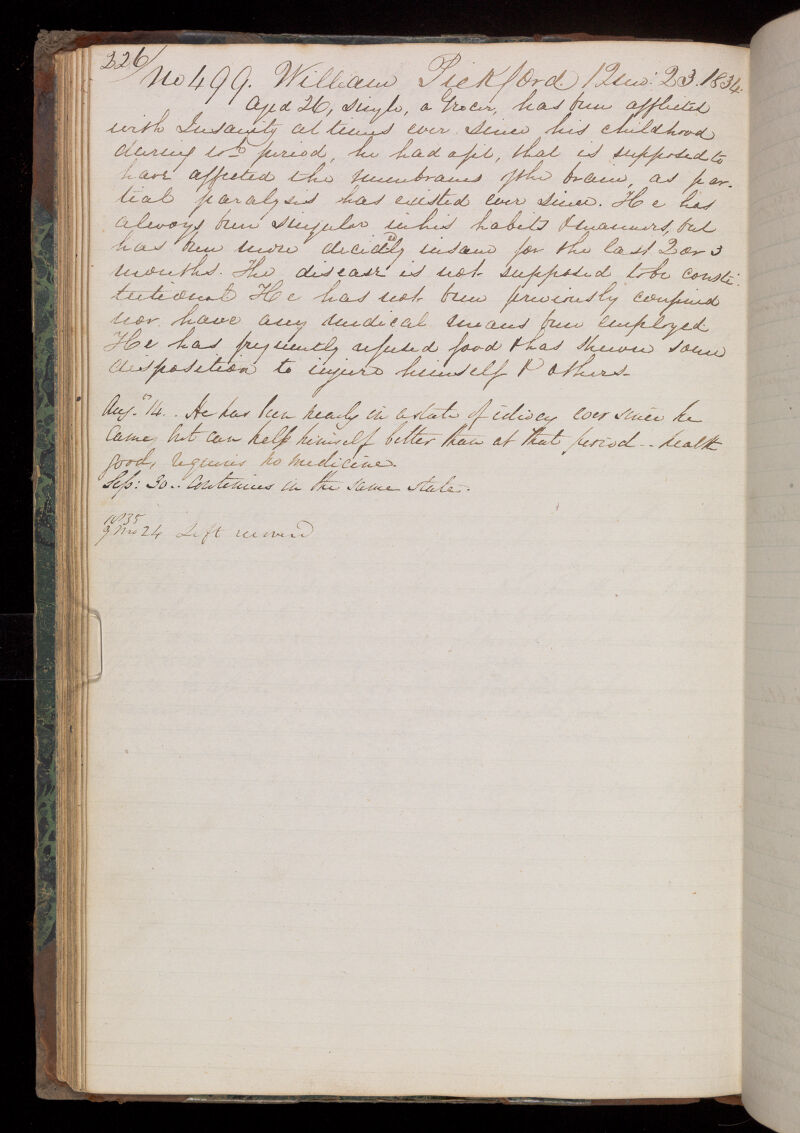 226/
No 499. William Pickford 12 mo: 23. 1834.
Aged 26, single, a Grocer, has been afflicted
with Insanity at times ever since his childhood
during wch period, he had a fit, that is supposed to
have affected the membranes of the brain, as par-
tial paralysis has existed ever since. He has
always been singular in his habits & manners, but
has been more decidedly insane for the last 2 or 3
months. The disease is not supposed to be consti:
tutional He has not been previously confined
nor have any medical means been employed
He has frequently refused food & has shewn some
disposition to injure himself & others.
Aug. 14. . He has been nearly in a state of idiocy ever since he
came, but can help himself better than at that period - - health
good, requires no medicine.
Sep: 30. . Continues in the same state.
1835
9 mo 24 Left